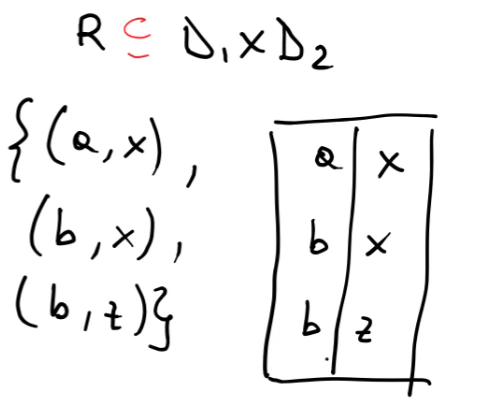 R ⊆ D₁ x D₂
{(a, x),
(b, x),
(b, z)}
a x
b x
b z